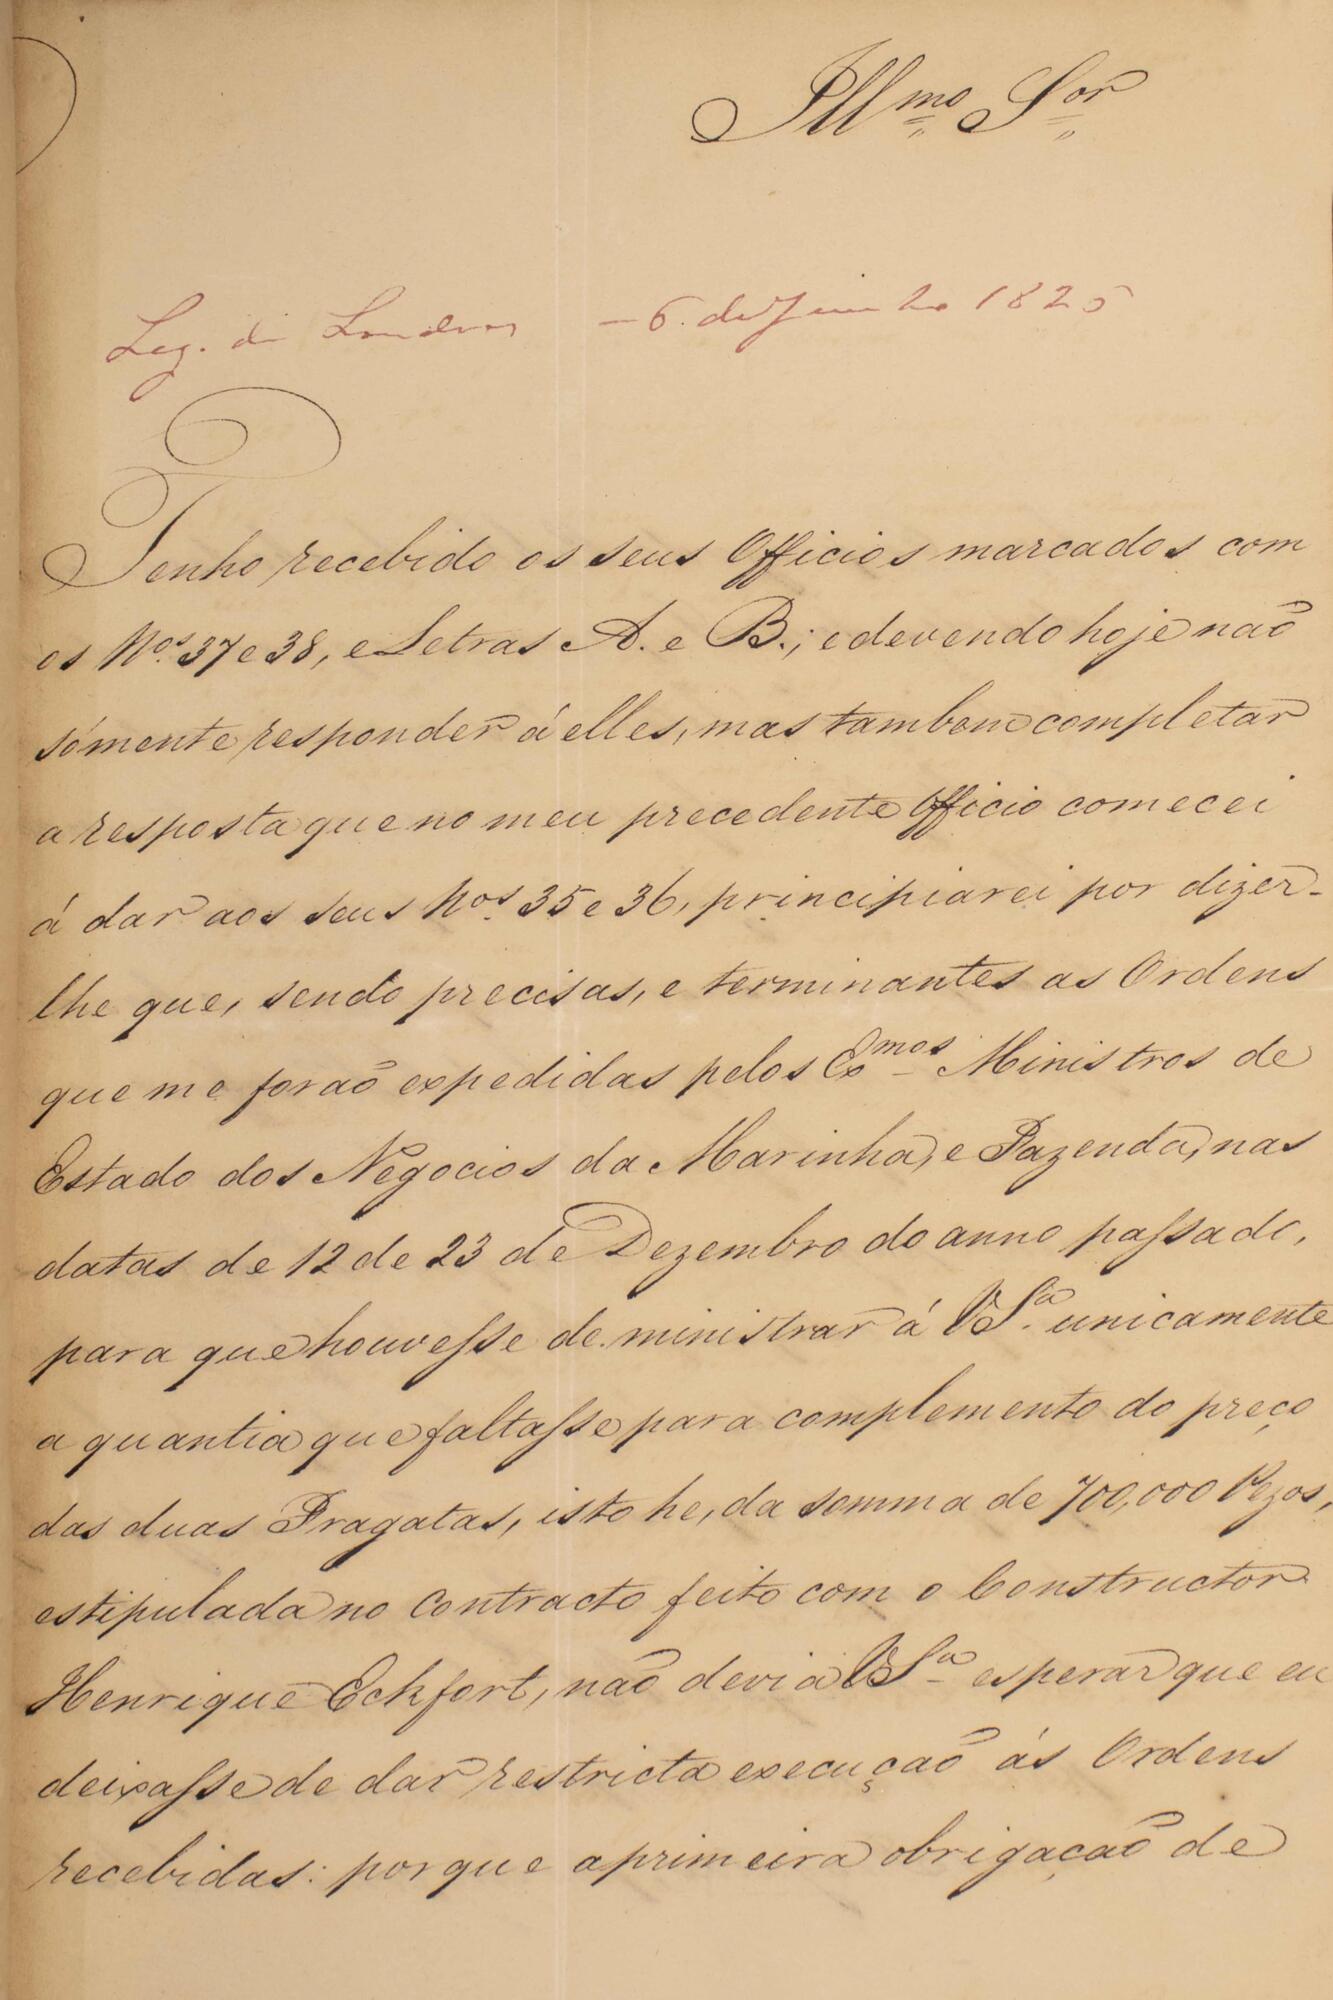 Illmo Sor
Leg. de Londres - 6. de Junho 1825
Tenho recebido os seus Officios marcados com
os Nos. 37 e 38, e Letras A. e B.; e devendo hoje naõ
sómente responder á elles, mas tambem completar
a resposta que no meu precedente Officio comecei
á dar aos seus Nos. 35 e 36, principiarei por dizer-
lhe que, sendo precisas, e terminantes as Ordens
que me foraõ expedidas pelos Exmos Ministros de
Estado dos Negocios da Marinha, e Fazenda, nas
datas de 12 de 23 de Dezembro do anno passado,
para que houvesse de ministrar á VSa. unicamente
a quantia que faltasse para complemento do preço
das duas Fragatas, isto he, da somma de 700,000 Pezos,
estipulada no Contracto feito com o Constructor
Henrique Eckfort, naõ devia VSa esperar que eu
deixasse de dar restricta execuçaõ ás Ordens
recebidas: porque a primeira obrigaçaõ de